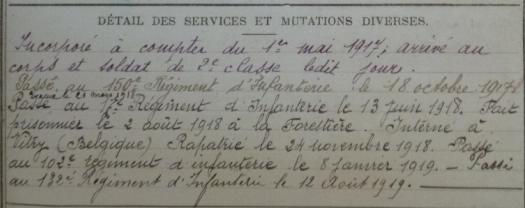 DÉTAIL DES SERVICES ET MUTATIONS DIVERSES.
Incorporé à compter du 1er mai 1917, arrivé au
corps et soldat de 2e classe ledit jour.
Passé au 150e Régiment d'Infanterie le 18 octobre 1917.
le 21 mars 1918
Passé au Régiment d'Infanterie le 13 juin 1918. Fait
prisonnier le 2 août 1918 à la Forestière. Interné à
Vitry (Belgique) Rapatrié le 24 novembre 1918. Passé
au 102e régiment d'infanterie le 8 Janvier 1919. — Passé
au 132e Régiment d'Infanterie le 12 Août 1919. —